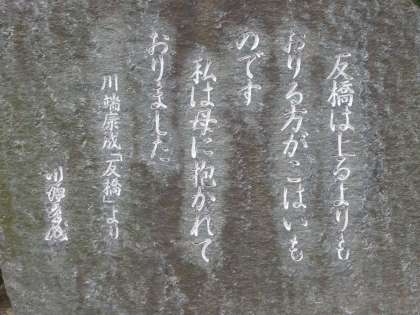 反橋は上るよりも
おりる方がこはいも
のです
私は母に抱かれて
おりました
川端康成「反橋」より
川端康成